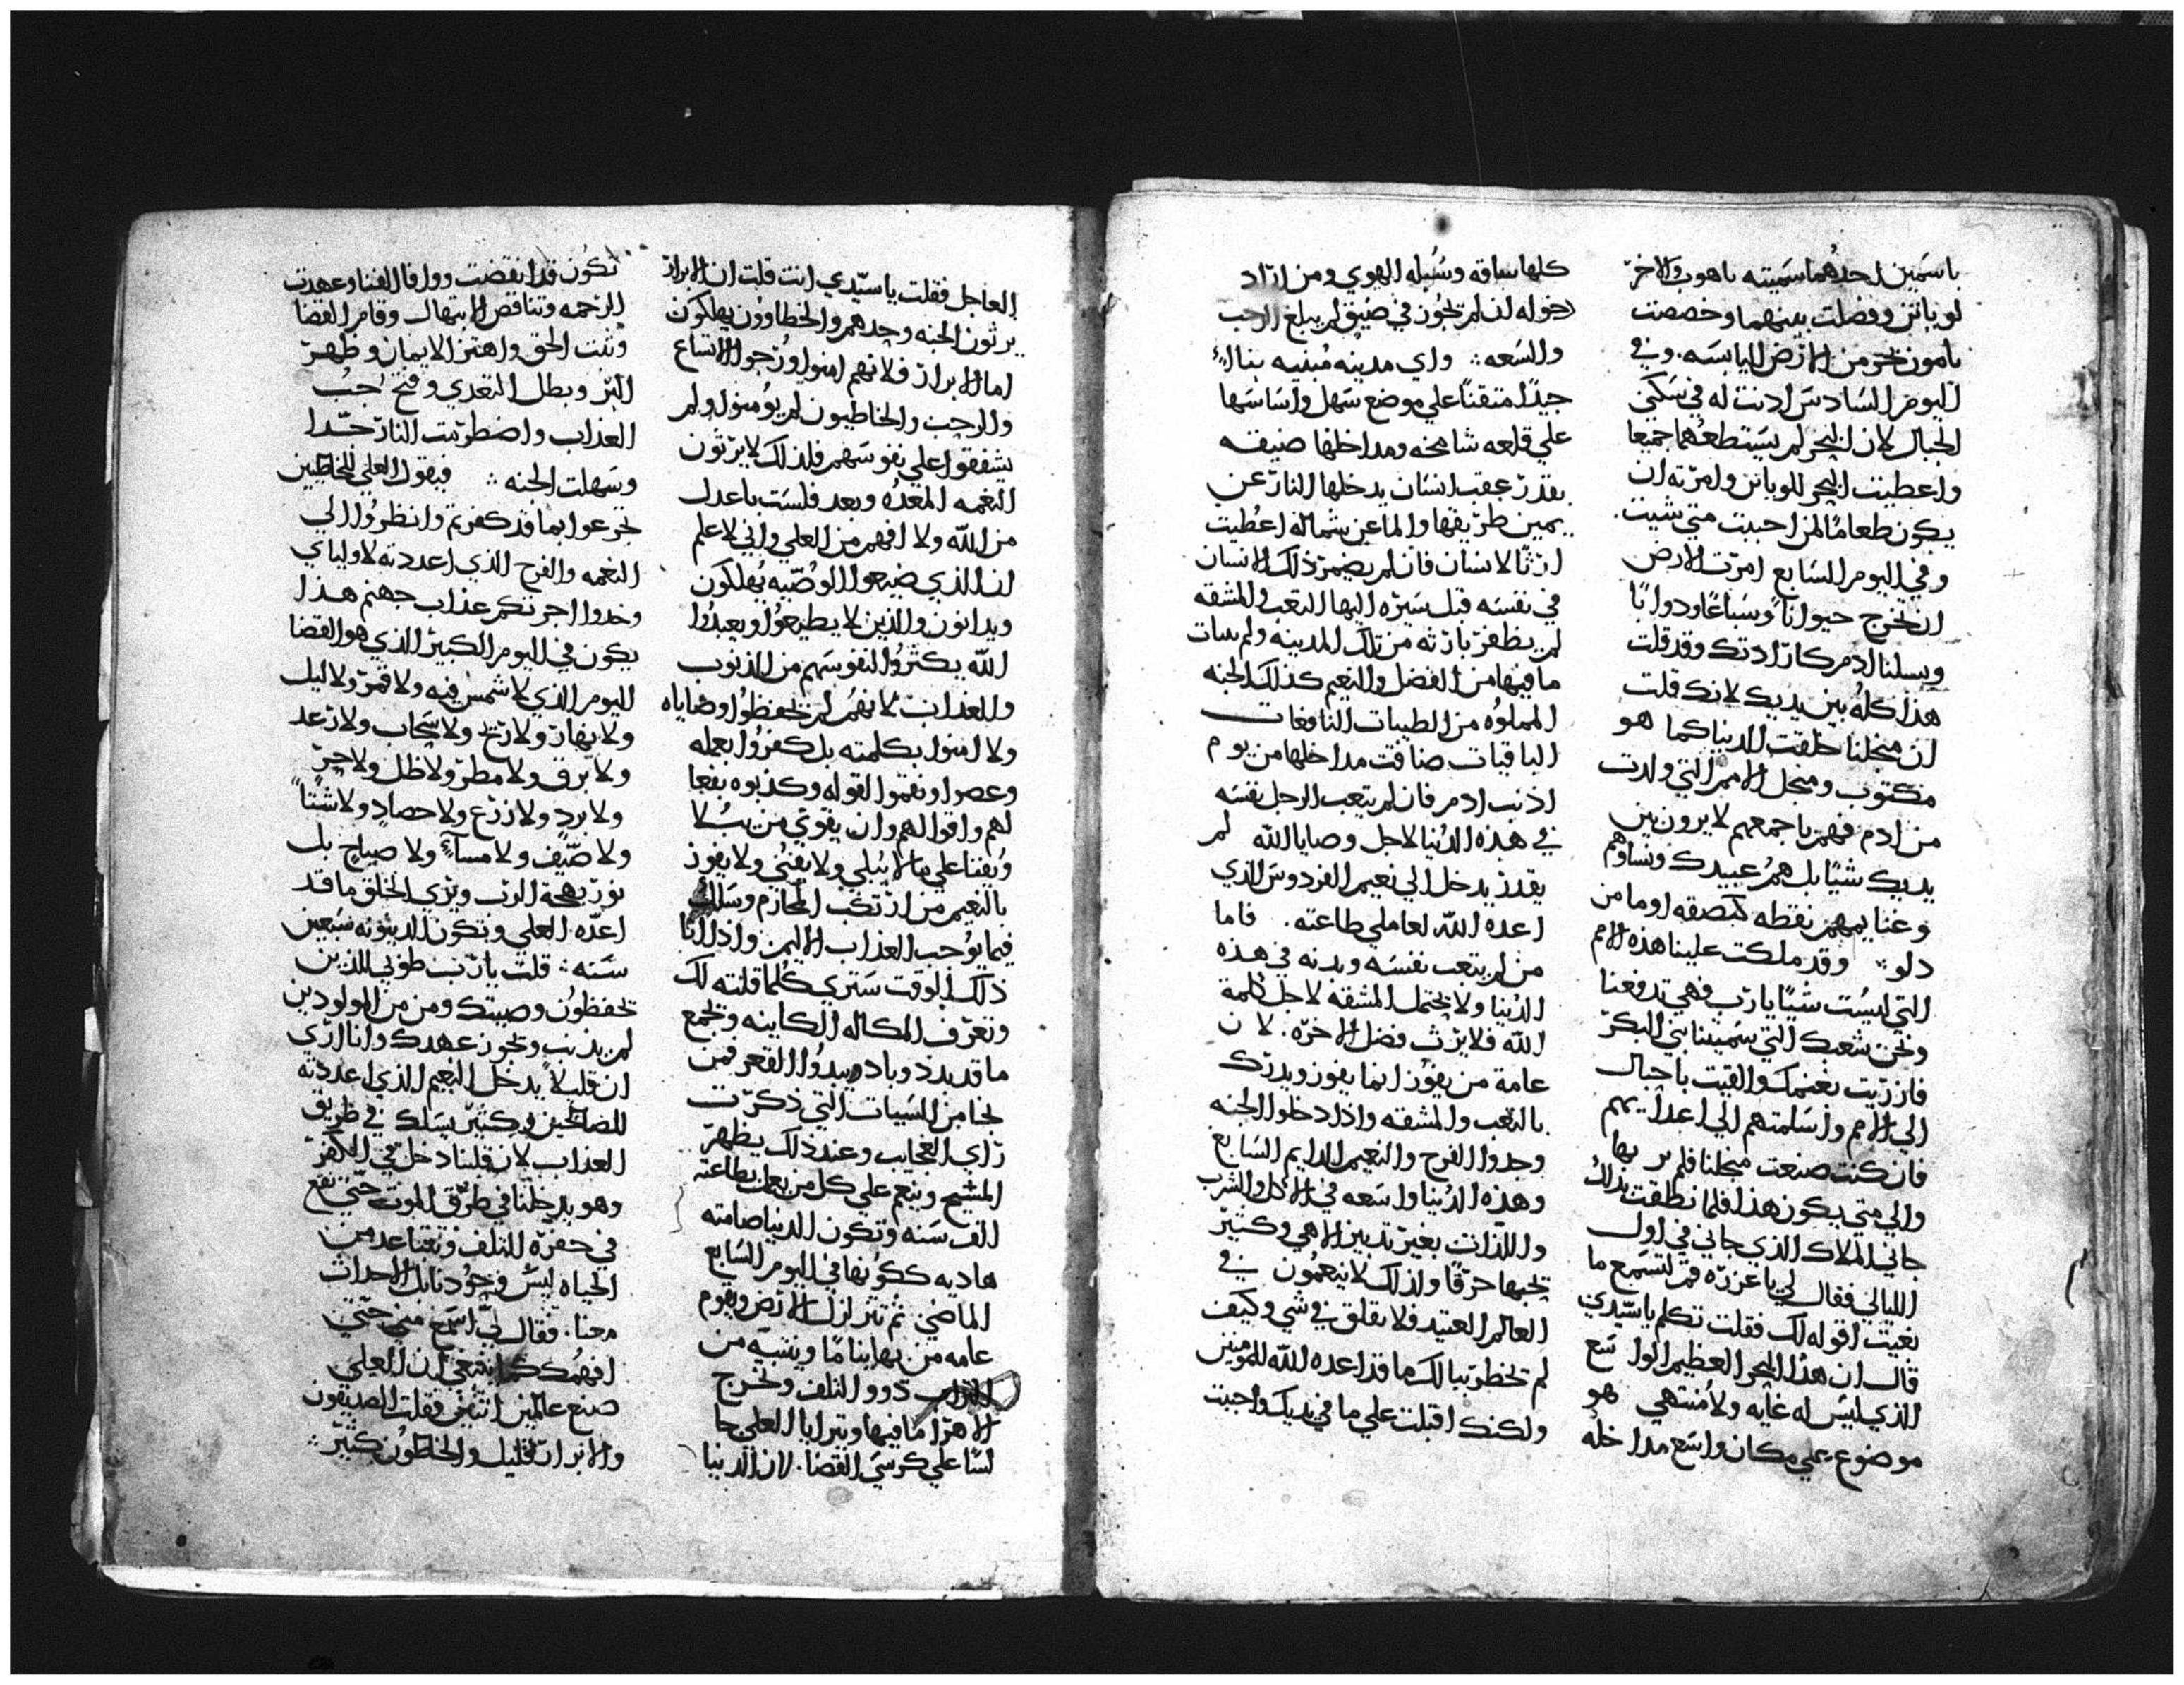 باسمين احدهما سميته باهوت والاخر
لوياتن وفصلت بينهما وخصصت
باموت بجز من الارض اليابسه. وفي
اليوم السادس اذنت له في سكني
الجبال لان البحر لم يستطعهما جميعا
واعطيت البحر للوياتن وامرته ان
يكون طعامًا لمن احببت متي شيت.
وفي اليوم السابع امرت الارض
ان تخرج حيوانًا وسباعًا ودوابًا
وبسلنا ادم كارادتك وقد قلت
هذا كله بين يديك لانك قلت
ان من اجلنا خلقت الدنيا كما هو
مكتوب ومن اجل الامم التي ولدت
من ادم فهم باجمعهم لا يرون بين
يديك شيًا بل هم عبيدك ونساوهم
وغنايمهم نقطه كبصقه او ما من
دلو ⁘ وقد ملكت علينا هذه الامم
التي ليست شيًا يا رب فهي تدفعنا
ونحن شعبك التي سميتنا بني البكر
فان زريت بغنمك والقيت باحبال
الي الامم واسلمتهم الي اعدايهم
فان كنت صنعت من اجلنا فلم بر بها
والي متي يكون هذا فلما نطقت بذلك
جاني الملاك الذي جاني في اول
الليالي فقال لي يا عزره قم لتسمع ما
بعيت اقوله لك فقلت تكلم يا سيدي
قال ان هذا البحر العظيم الواسع
الذي ليس له غايه ولا منتهي هو
موضوع علي مكان واسع مداخله
كلها ساقه وسبله الهوي ومن اراد
دخوله ان لم تجوز في ضيق لم يبلغ الرحب
والسعه ⁘ واي مدينه مبنيه بنااً
جيدًا متقنًا علي موضع سهل واساسها
علي قلعه شامخه ومداخلها ضيقه
بقدر عقب انسان يدخلها النار عن
يمين طريقها والما عن شماله اعطيت
ارثًا لانسان فان لم يضمر ذلك الانسان
في نفسه قبل سيره اليها التعب والمشقه
لم يظفر بارثه من تلك المدينه ولم ينات
ما فيها من الفضل والنعيم كذلك الجنه
المملوه من الطيبات النافعات
الباقيات ضاقت مداخلها من يوم
اذنب ادم فان لم يتعب الرجل نفسه
في هذه الدنيا لاجل وصايا الله لم
يقدر يدخل الي نعيم الفردوس الذي
اعده الله لعاملي طاعته. فاما
من لم يتعب نفسه وبدنه في هذه
الدنيا ولا يحتمل المشقه لاجل كلمة
الله فلا يرث فضل الاخره. لان
عامة من يفوز انما يفوز ويدرك
بالتعب والمشقه واذا دخلوا الجنه
وجدوا الفرح والنعيم الدايم السابع
وهذه الدنيا واسعه في الاكل والشرب
واللذات بغير تدبير الاهي وكثير
تحبها حرقًا ولذلك لا ينعمون في
العالم العتيد فلا تقلق في شي وكيف
لم تخطر ببالك ما قد اعده الله للمومنين
ولكنك اقبلت علي ما في يديك واحببت
العاجل فقلت يا سيدي انت قلت ان الابرار
يرثون الجنه وحدهم والخطاوون يهلكون
اما الابرار فلانهم امنوا ورجوا الاتساع
والرحب والخاطيون لم يومنوا ولم
يشفقوا علي نفوسهم فلذلك لا يرثون
النعمه المعده وبعد فلست باعدل
من الله ولا افهم من العلي واني لاعلم
ان الذي ضيعوا الوصيه يهلكون
ويدانون والذين لا يطيعوا ويعبدوا
الله يكثروا لنفوسهم من الذنوب
والعذاب لانهم لم يحفظوا وصاياه
ولا امنوا بكلمته بل كفروا بعمله
وعصوا ونقموا القوله وكذبوه بفعا
لهم واقوالهم وان يقوي من يبلا
ويفنا علي ما لا يبلي ولا يفني ولا يفوز
بالنعيم من ارتكب المحارم وسلك
فيما يوجب العذاب الاليم واذا انا
ذلك الوقت ستري كلما قلته لك
وتعرف المكاله الكاينه وتجمع
ما قد بدد وباد ويبدوا القعر فمن
نجا من السيات التي ذكرت
راي العجايب وعند ذلك يظهر
المسيح وينعم علي كل من يعمل بطاعته
الف سنه وتكون الدنيا صامته
هاديه ككونها في اليوم السابع
الماضي ثم تتزلزل الارض ويقوم
عامه من بها نيامًا وينتبه من
التراب ذوو التلف وتخرج
الاهرا ما فيها ويترايا العلي جا
لسًا علي كرسي القضا. لان الدنيا
تكون قد انقضت ووافا الفنا وعهدت
الرحمه وتناقص الابتهال وقام القضا
وثبت الحق واهتز الايمان وظهر
البر وبطل التعدي وفتح جب
العذاب واضطرمت النار جدا
وسهلت الجنه ⁘ فيقول العلي للخاطيين
تجرعوا بما قد كفرتم وانظروا الي
النعمه والفرح الذي اعددته لاوليااي
وخدوا اجرتكم عذاب جهنم هذا
يكون في اليوم الكبير الذي هو القضا
اليوم الذي لا شمس فيه ولا قمر ولا ليل
ولا نهار ولا ريح ولا سحاب ولا رعد
ولا برق ولا مطر ولا ظل ولا حر
ولا برد ولا زرع ولا حصاد ولا شتًا
ولا صيف ولا مسآء ولا صباح بل
نور بهجة الرب ويري الخلق ما قد
اعده العلي وتكون الدينونه سبعين
سنه ⁘ قلت يا رب طوبي للذين
يحفظون وصيتك ومن من المولودين
لم يذنب ويجوز عهدك وانا اري
ان قليلاً يدخل النعيم الذي اعددته
للصالحين وكثير يسلك في طريق
العذاب لان قلبنا دخل في الكفر
وهو يدخلنا في طرق الموت حتي نقع
في حفرة التلف ونتباعد من
الحياه ليس وجودنا بل الاحداث
معنا. فقال لي اسمع مني حتي
افهمك كما ينبغي ان العلي
صنع عالمين اثنين فقلت الصديقون
والابرار قليل والخاطون كثير ⁘